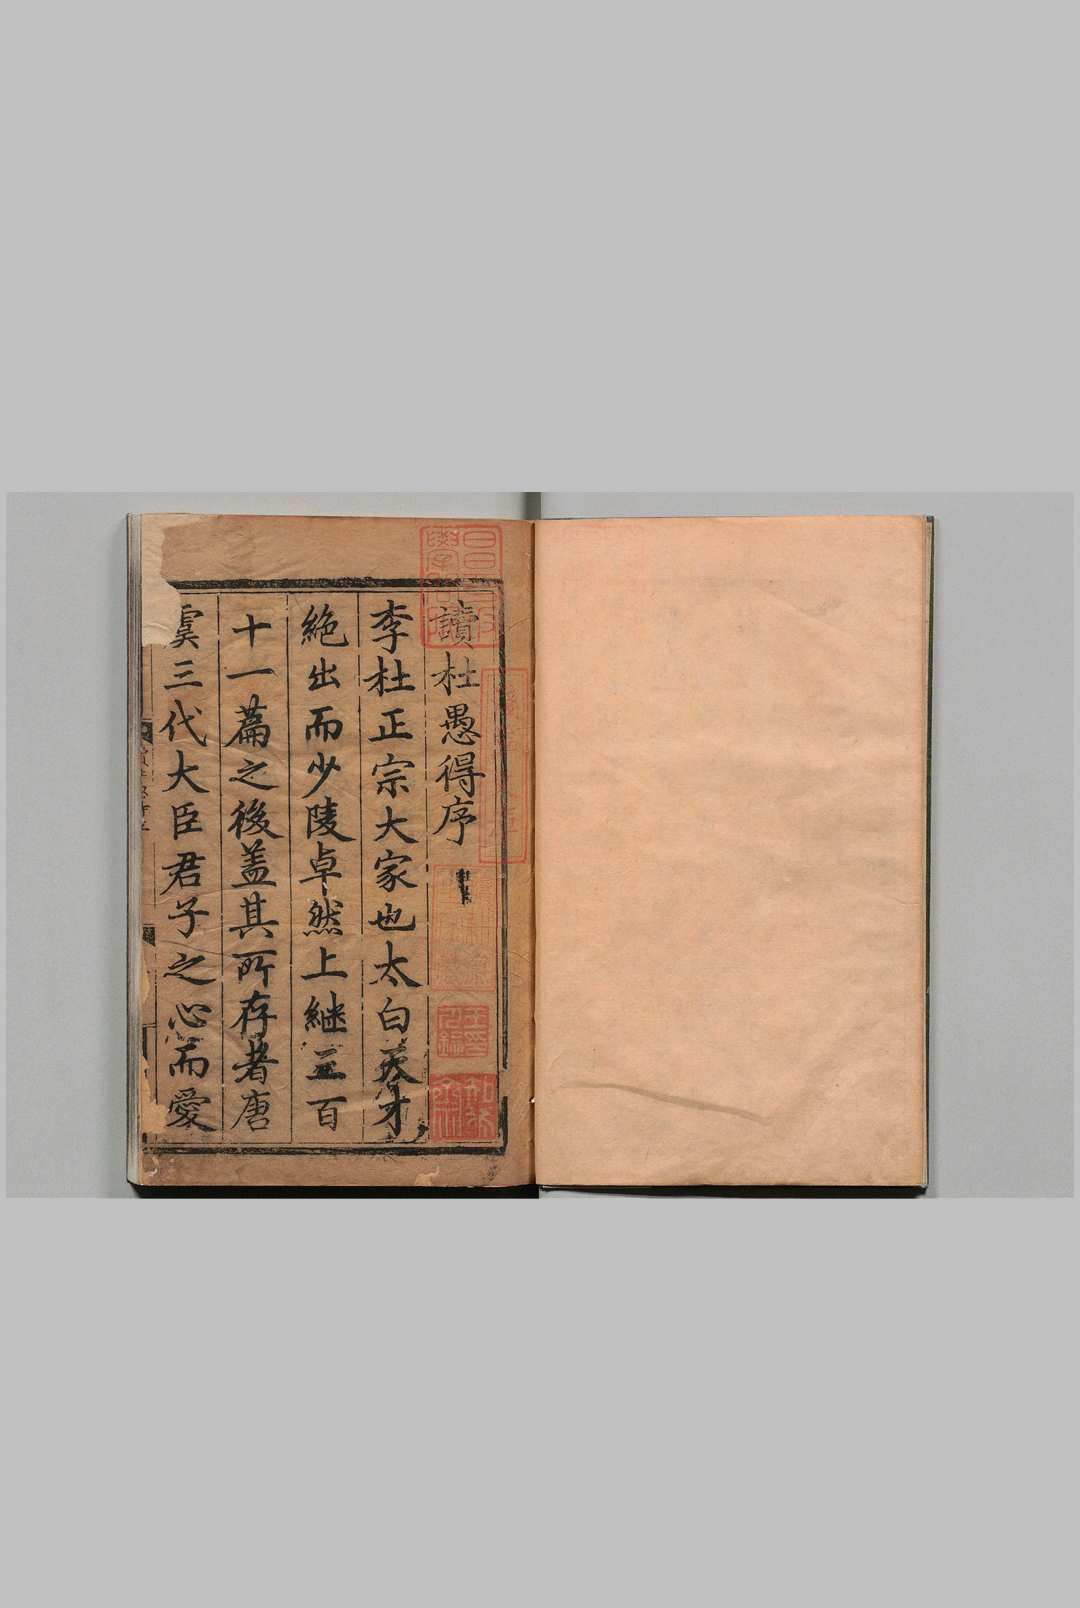 讀杜愚得序
李杜正宗大家也太白天才
絶出而少陵卓然上継三百
十一篇之後盖其所存者唐
虞三代大臣君子之心而愛